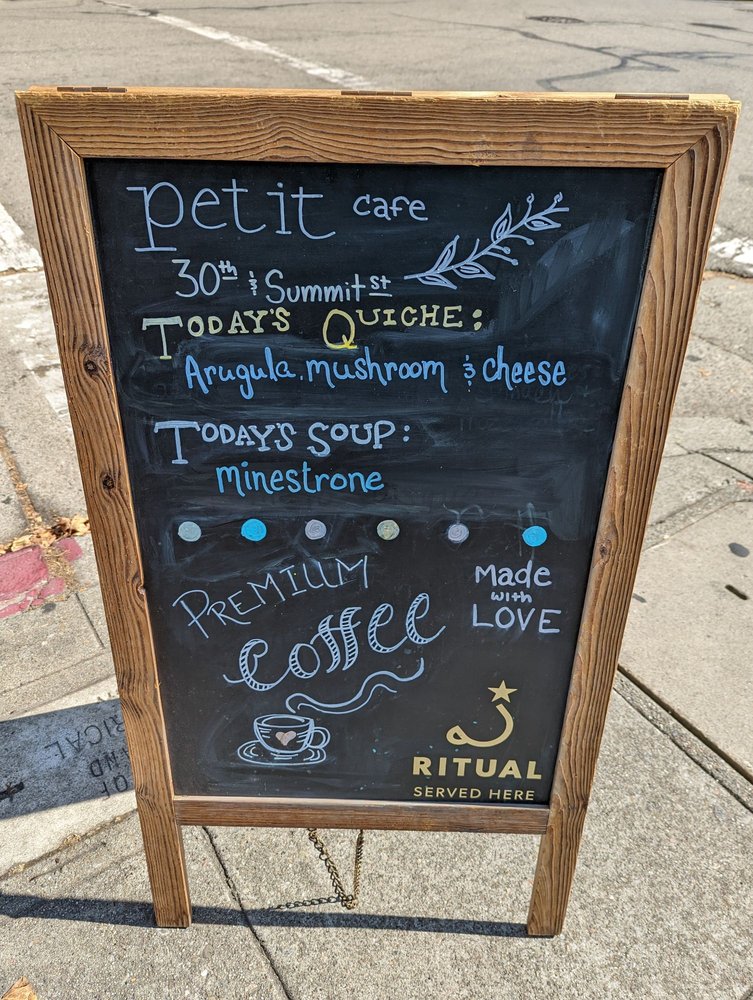 petit cafe
30th & Summit st
TODAY'S QUICHE:
Arugula, mushroom & cheese
TODAY'S SOUP:
Minestrone
PREMIUM
Coffee
Made
with
LOVE
RITUAL
SERVED HERE
RICAL
AND
OF